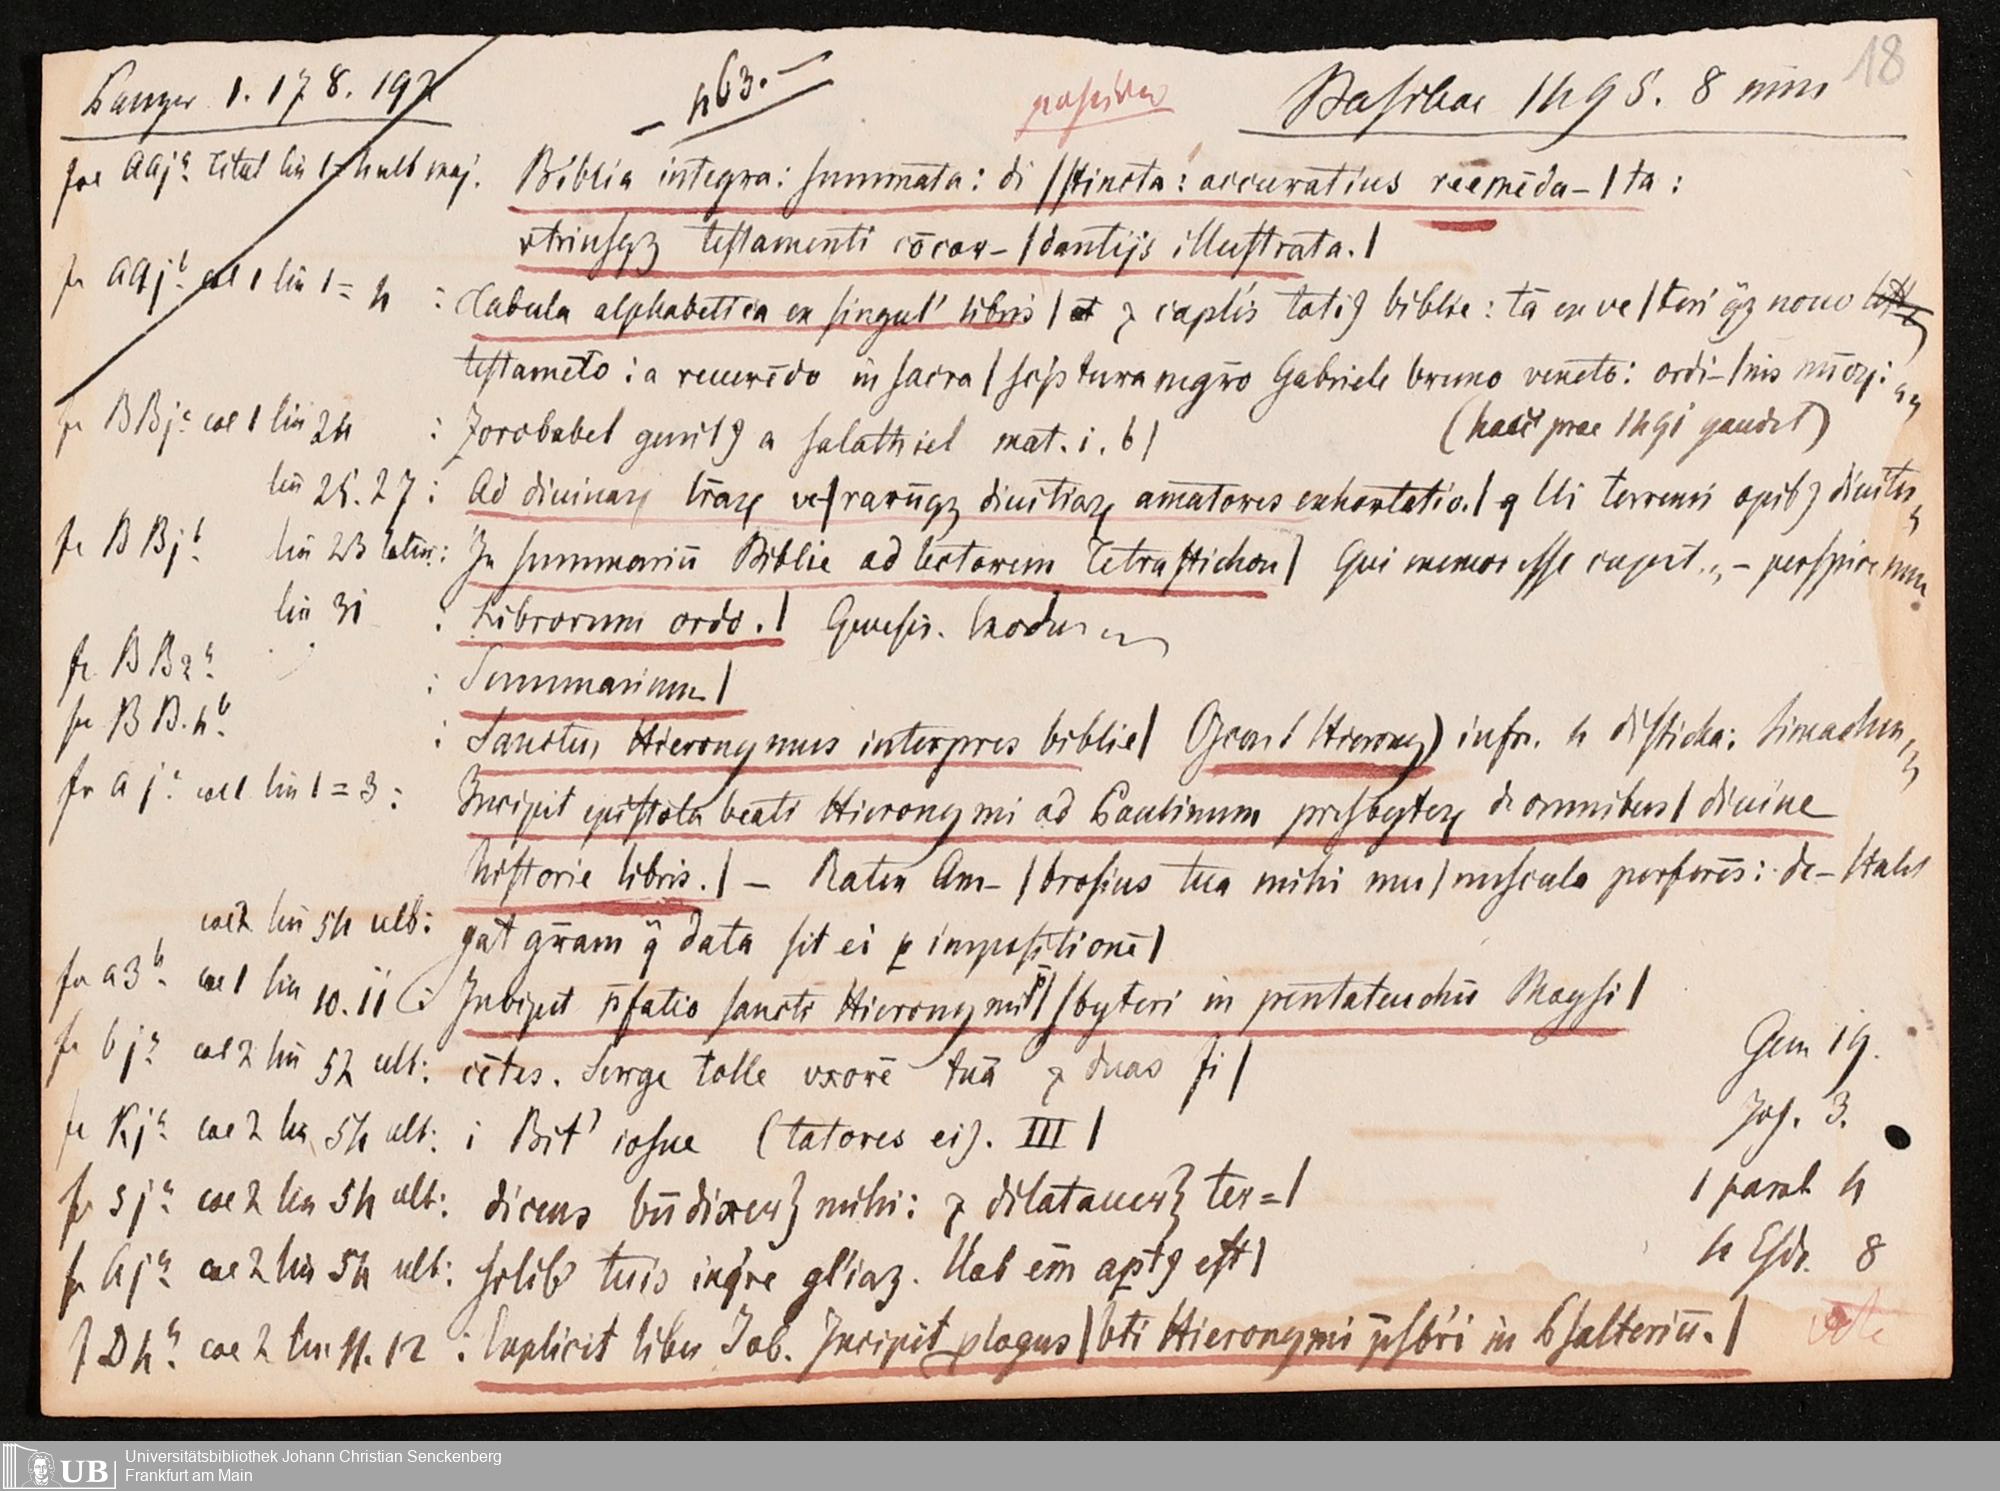 Panzer 1. 178. 192
463.
Basileae 1495. 8 min
18
fol aaj a titul lin 1-4 ult maj. Biblia integra: summata: di|stincta: accuratius reemēda-|ta:
vtriusqꝫ testamenti cōcor-|dantijs illustrata.|
fo aaj b col 1 lin 1=4 : Tabula alphabetica ex singul' libris| ⁊ caplis totiꝰ biblie: tā ex ve|teri qꝫ nouo
testamēto: a reuerēdo in sacra| scriptura mgr̄o Gabriele bruno veneto: ordi-|nis mīoꝝ:
fo BBj a col 1 lin 24 : Zorobabel genitꝰ a salathiel mat. i. b|
(haec prae 1491 gaudet)
lin 25. 27: Ad diuinaꝝ lr̄aꝝ ve|rarūqꝫ diuitiaꝝ amatores exhortatio.| q Ui terrenis opibꝰ diuites
fo BBj b lin 23 : In summariū Biblie ad lectorem Tetrastichon| Qui memor esse cupit - perspice
lin 31 : Librorum ordo.| Genesis. Exodus
fo BB2 a : Summarium|
fo BB.4 b : Sanctus Hieronymus interpres biblie| (Icon S Hierony) infr. 4 disticha:
fo a j a col 1 lin 1=3: Incipit epistola beati Hieronymi ad Paulinum presbyteꝝ de omnibus| diuine
historie libris.| - Rater Am-|brosius tua mihi mu|nuscula perferēs: de-|tulit
col 2 lin 54 ult: gat gr̄am q̄ data sit ei ꝑ impositionē|
fo a3 b col 1 lin 10. 11 : Incipit p̄fatio sancti Hieronymi p̄|sbyteri in pentateuchū Moysi|
fo b j a col 2 lin 52 ult: cētes. Surge tolle vxorē tuā ⁊ duas fi| Gen 19.
fo K j a col 2 lin 54 ult: i Dixit' iosue (tatores eiꝰ. III| Jos. 3.
fo s j a col 2 lin 54 ult: dicens bn̄dixerꝭ mihi: ⁊ dilatauerꝭ ter=| 1 paral 4
fo A j a col 2 lin 54 ult: tuis Nab em̄ aptꝰ est| 4 Esdr. 8
f D4 a col 2 lin 11. 12 : Explicit liber Job. Incipit plogus| bti Hieronymi p̄sbr̄i in Psalteriū.|
Universitätsbibliothek Johann Christian Senckenberg
Frankfurt am Main
UB